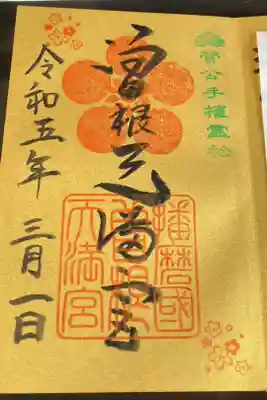 菅公手植霊松
曽根天満宮
播磨國曽根天満宮
令和五年 三月一日